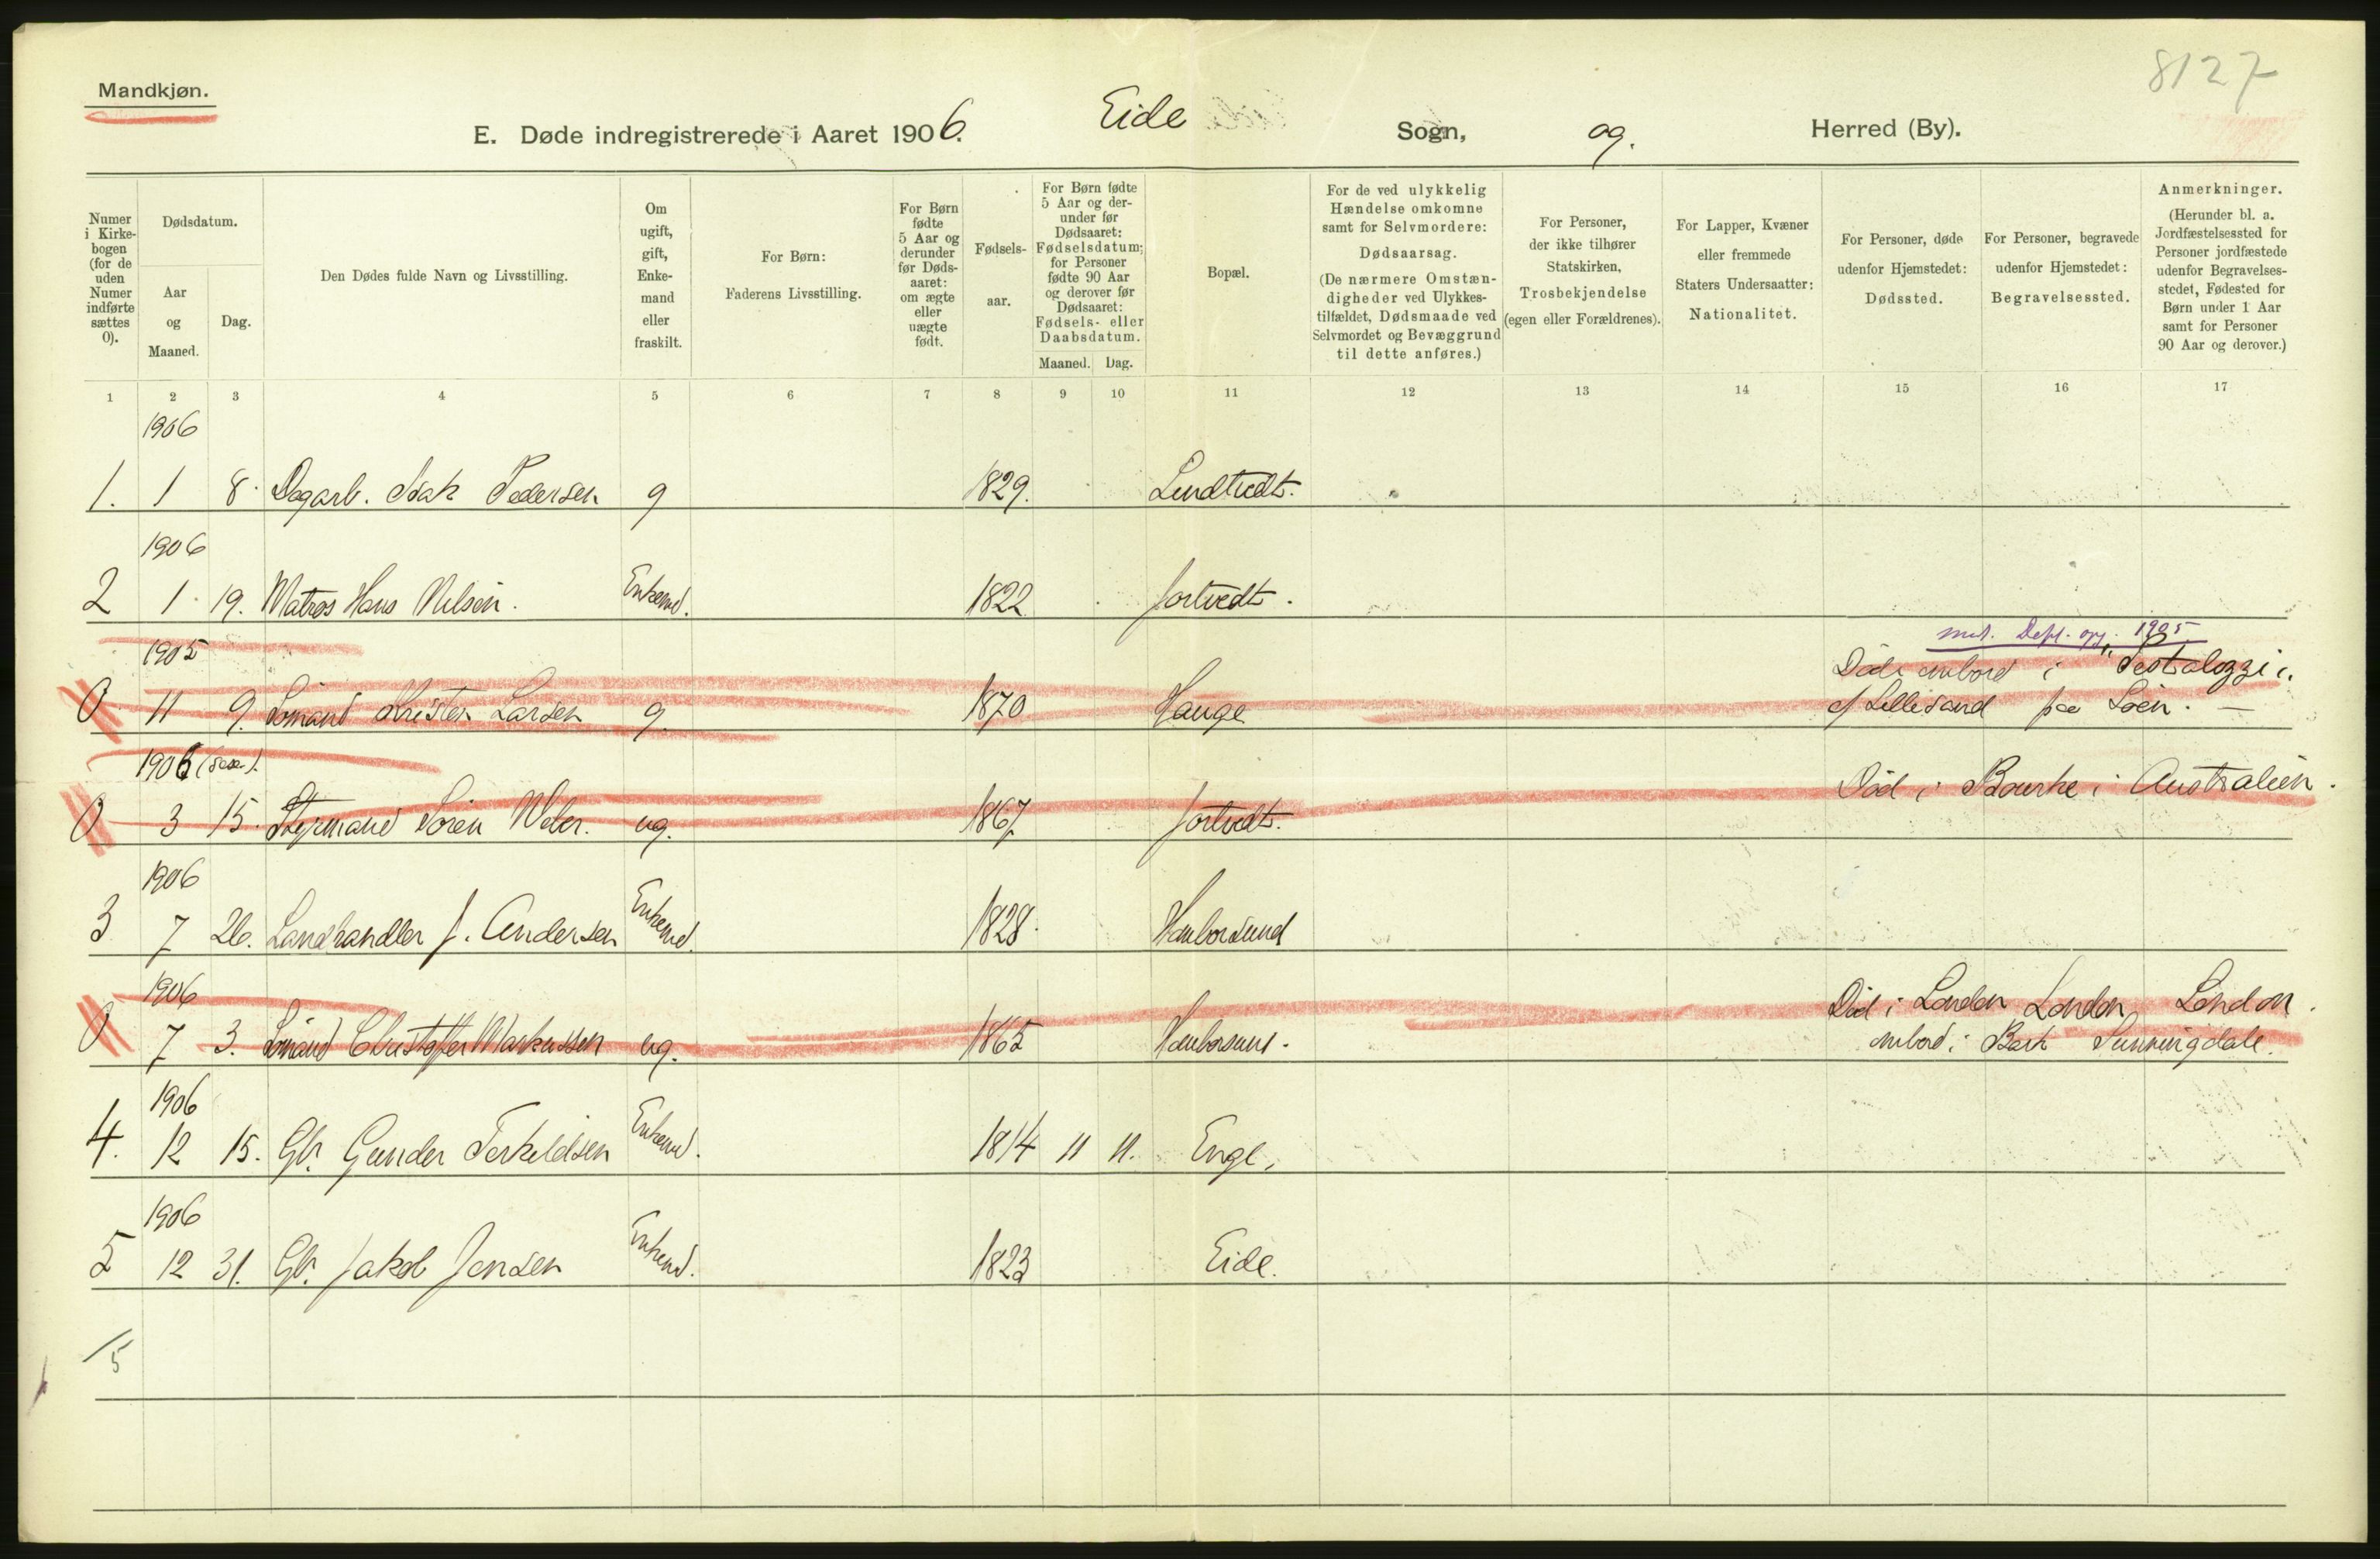 8127
Mandkjøn.
E. Døde indregistrerede i Aaret 1906. Eide Sogn, og. Herred (By).
Numer i Kirkebogen (for de uden Numer indførte sættes 0).
Dødsdatum.
Aar og Maaned.
Dag.
Den Dødes fulde Navn og Livsstilling.
Om ugift, gift, Enkemand eller fraskilt.
For Børn: Faderens Livsstilling.
For Børn fødte 5 Aar og derunder før Dødsaaret: om ægte eller uægte født.
Fødselsaar.
For Børn fødte 5 Aar og derunder før Dødsaaret: Fødselsdatum; for Personer fødte 90 Aar og derover før Dødsaaret: Fødsels- eller Daabsdatum.
Maaned. Dag.
Bopæl.
For de ved ulykkelig Hændelse omkomne samt for Selvmordere: Dødsaarsag. (De nærmere Omstændigheder ved Ulykkestilfældet, Dødsmaade ved Selvmordet og Bevæggrund til dette anføres.)
For Personer, der ikke tilhører Statskirken, Trosbekjendelse (egen eller Forældrenes).
For Lapper, Kvæner eller fremmede Staters Undersaatter: Nationalitet.
For Personer, døde udenfor Hjemstedet: Dødssted.
For Personer, begravede udenfor Hjemstedet: Begravelsessted.
Anmerkninger. (Herunder bl. a. Jordfæstelsessted for Personer jordfæstede udenfor Begravelsesstedet, Fødested for Børn under 1 Aar samt for Personer 90 Aar og derover.)
1 2 3 4 5 6 7 8 9 10 11 12 13 14 15 16 17
1906
1. 1 8. Dagarb. Isak Pedersen g 1829. Lindtvedt.
1906
2 1 19. Matros Hans Nilsen. Enkemd. 1822 Jortvedt.
1905 1905
Døde ombord i "Pestalozzi"
0 11 9. Sömand Kristen Larsen g. 1870 Hauge af Lillesand paa Söen. —
1906 Död i Bourke i Australien.
0 3 15. Styrmand Sören Weber. ug. 1867 Jortvedt.
1906
3 7 26. Landhandler J. Andersen Enkemd. 1828. Homborsund
1906 Död i London London London.
0 7 3. Sömand Christoffer Markussen ug. 1865 Homborsund. ombord i Bark Sunningdale.
1906
4. 12 15. Gbr. Gunder Terkeldsen Enkemd. 1814 11 11. Enge.
1906
5 12 31. Gbr. Jakob Jensen Enkemd. 1823 Eide.
5